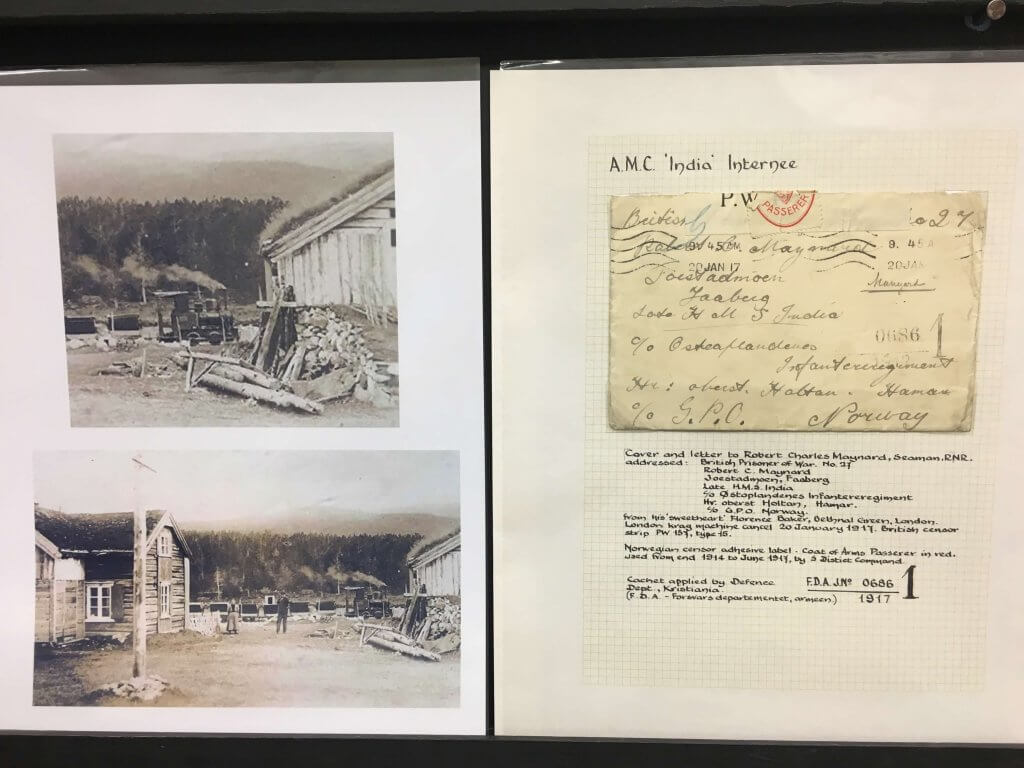 A.M.C. 'India' Internee
P.W
PASSERER
British
o 27
Robert C. Maynard
9V 4.5 AM
20 JAN 17
9. 45 A
20 JAN
Maynard
Joestadmoen
Faaberg
Late H M S India
0686 1
c/o Osteaplandenes
Infanteriregiment
Hr: oberst. Holtan. Hamar
c/o G.P.O. Norway
Cover and letter to Robert Charles Maynard, Seaman, RNR.
addressed: British Prisoner of War. No. 27
Robert C. Maynard
Joestadmoen, Faaberg
Late H.M.S. India
c/o Østoplandenes Infantereregiment
Hr. oberst Holtan, Hamar.
c/o G.P.O. Norway.
from his 'sweetheart' Florence Baker, Bethnal Green, London.
London krag machine cancel 20 January 1917. British censor
strip PW 157, type 15.
Norwegian censor adhesive label - Coat of Arms Passerer in red.
used from end 1914 to June 1917, by 5 Distict Command.
Cachet applied by Defence
Dept., Kristiania.
(F.D.A. - Forsvars departementet, armeen.)
F.D.A. J.Nº 0686 1
1917